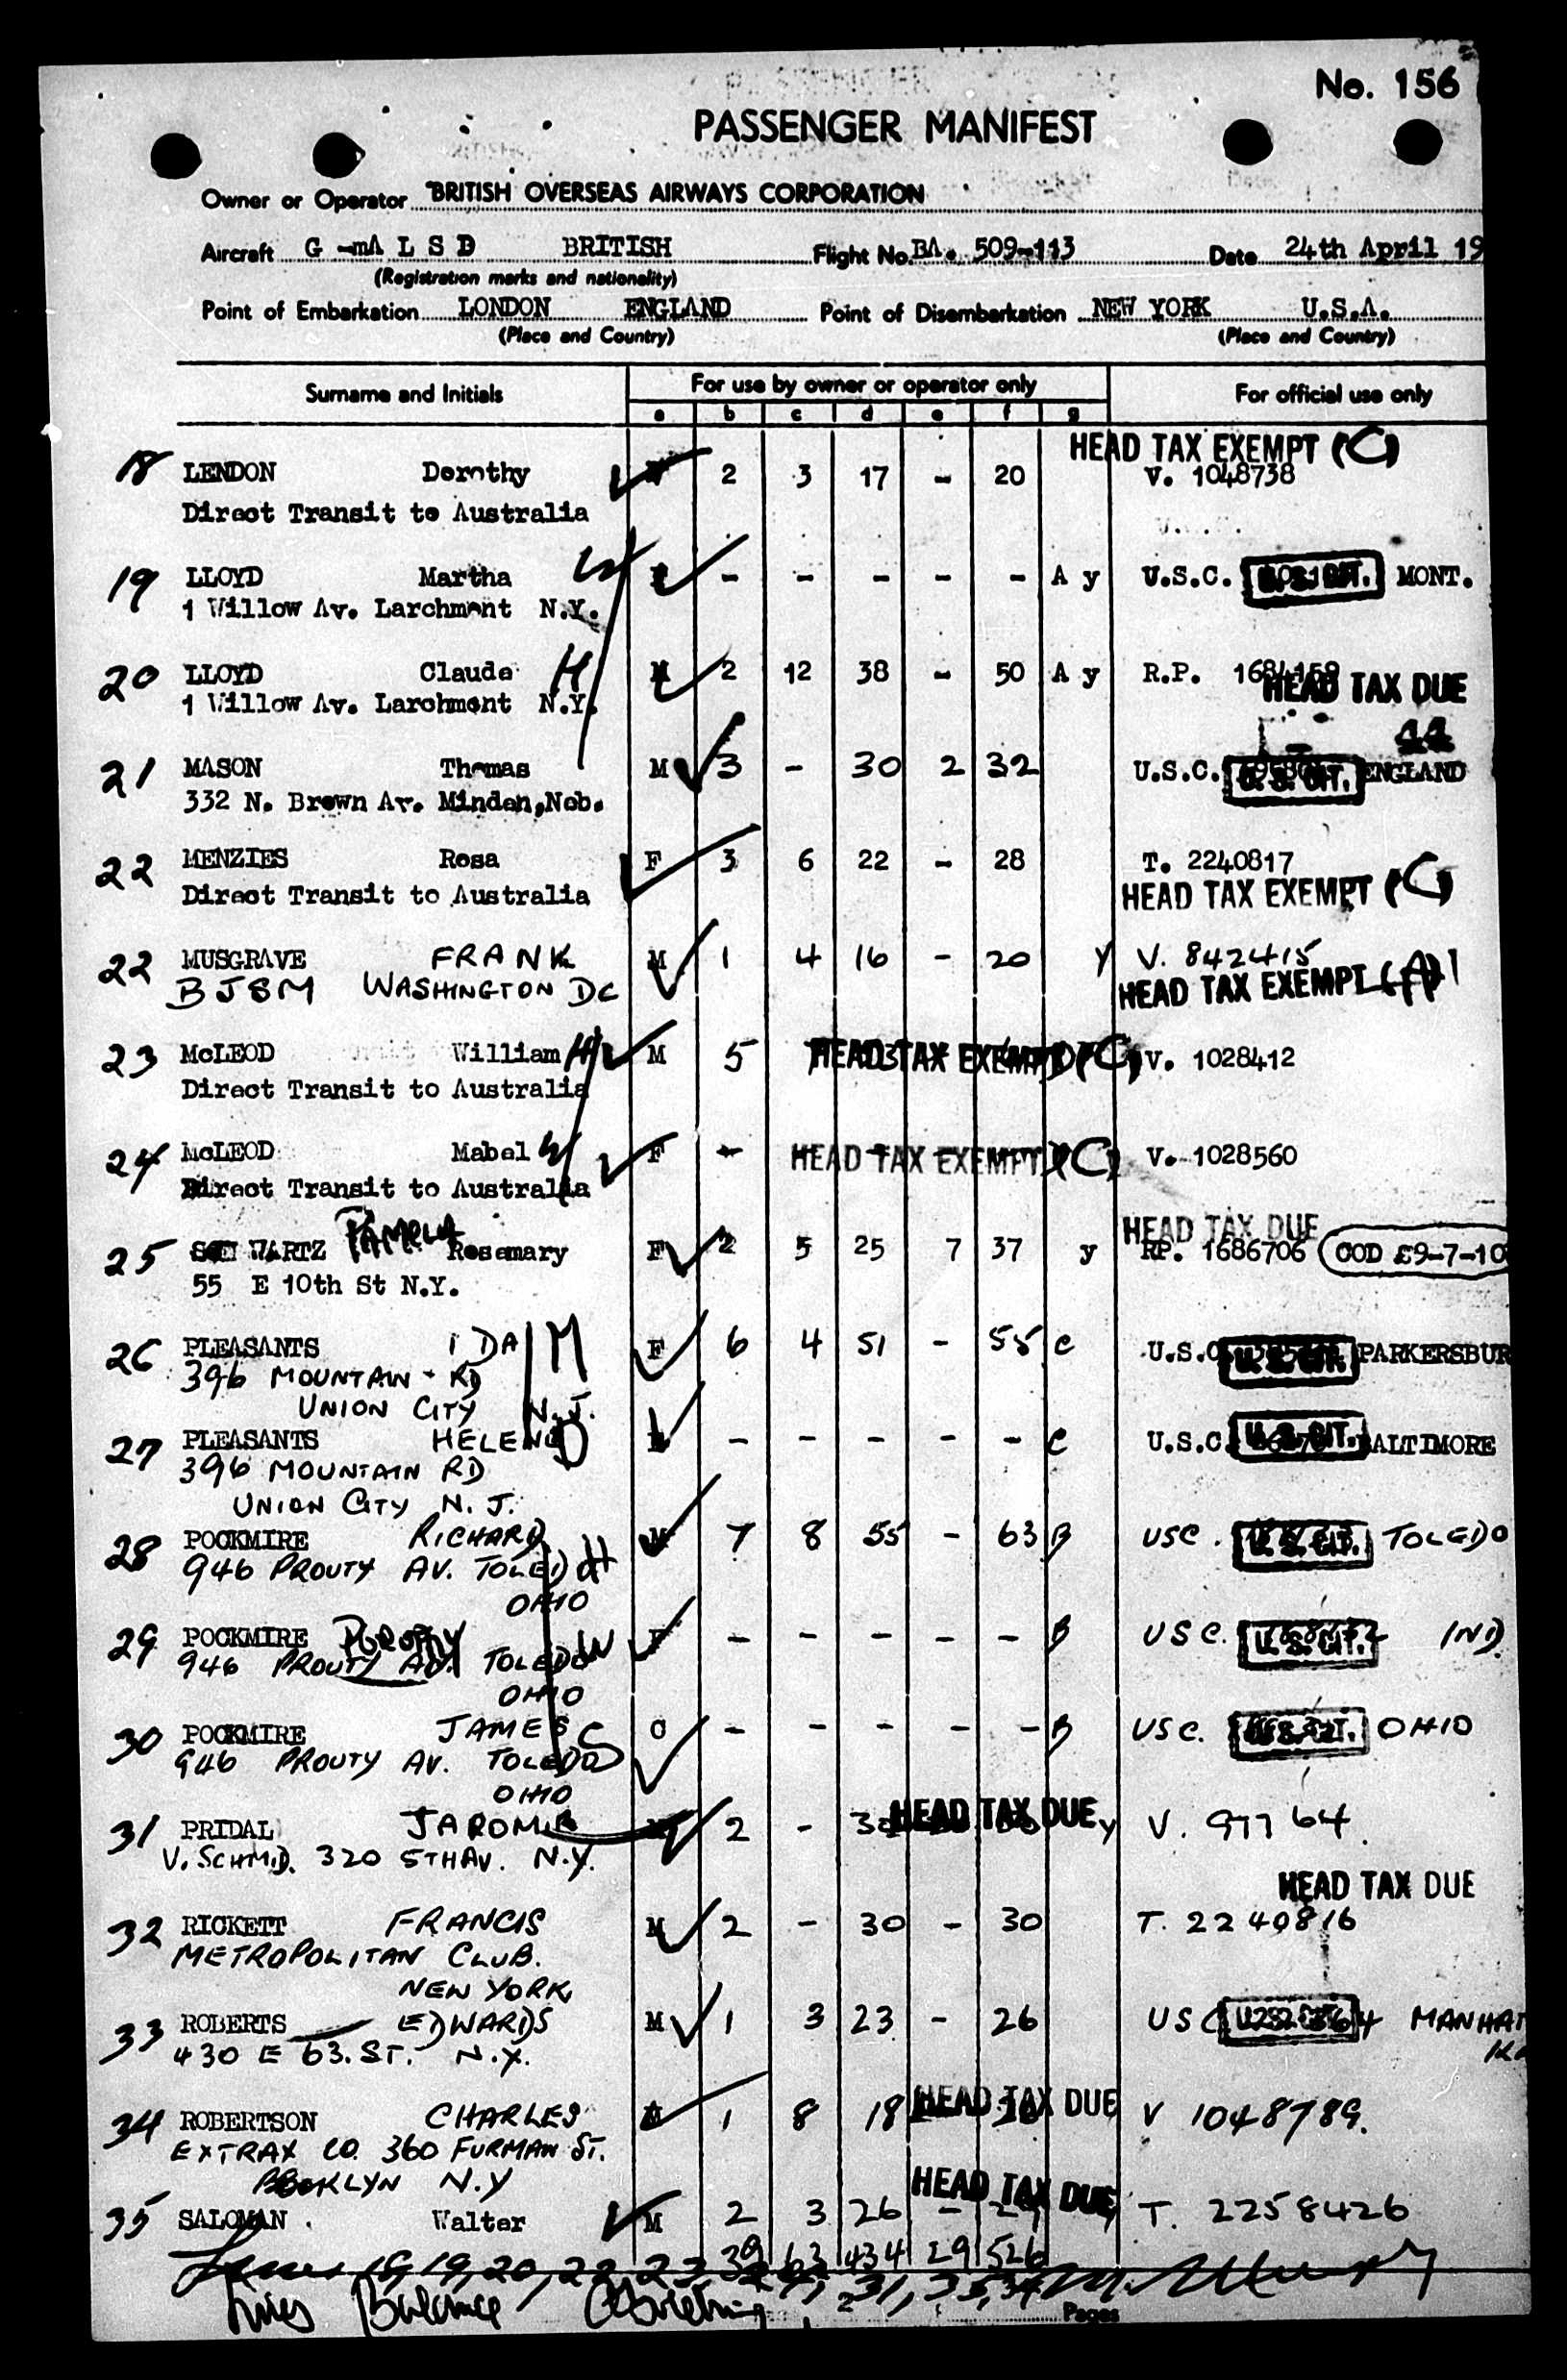 No. 156
PASSENGER MANIFEST
Owner or Operator BRITISH OVERSEAS AIRWAYS CORPORATION
Aircraft G -mA L S D BRITISH Flight No. BA. 509-113 Date 24th April 19
(Registration marks and nationality)
Point of Embarkation LONDON ENGLAND Point of Disembarkation NEW YORK U.S.A.
(Place and Country) (Place and Country)
Surname and Initials For use by owner or operator only For official use only
a b c d e f g
HEAD TAX EXEMPT (C)
18 LENDON Dorothy 2 3 17 - 20 V. 1048738
Direct Transit to Australia
19 LLOYD Martha W - - - - - A y U.S.C. U.S. CIT. MONT.
1 Willow Av. Larchmont N.Y.
20 LLOYD Claude H M 2 12 38 - 50 A y R.P. 1684159
1 Willow Av. Larchmont N.Y. HEAD TAX DUE
44
21 MASON Thomas M 3 - 30 2 32 U.S.C. U.S. CIT. ENGLAND
332 N. Brown Av. Minden, Neb.
22 MENZIES Rosa F 3 6 22 - 28 T. 2240817
Direct Transit to Australia HEAD TAX EXEMPT (C)
22 MUSGRAVE FRANK M 1 4 16 - 20 y V. 842415
BJSM WASHINGTON DC HEAD TAX EXEMPT (A)
23 McLEOD William H M 5 HEAD TAX EXEMPT (C) V. 1028412
Direct Transit to Australia
24 McLEOD Mabel W F - HEAD TAX EXEMPT (C) V. 1028560
Direct Transit to Australia
PAMELA HEAD TAX DUE
25 SCHWARTZ Rosemary F 2 5 25 7 37 y RP. 1686706 COD £9-7-10
55 E 10th St N.Y.
26 PLEASANTS IDA M F 6 4 51 - 55 C U.S.C. U.S. CIT. PARKERSBUR
396 MOUNTAIN RD
UNION CITY N.J.
27 PLEASANTS HELEN D - - - - - C U.S.C. U.S. CIT. BALTIMORE
396 MOUNTAIN RD
UNION CITY N.J.
28 POCKMIRE RICHARD M 7 8 55 - 63 B USC. U.S. CIT. TOLEDO
946 PROUTY AV. TOLEDO H
OHIO
29 POCKMIRE DOROTHY W F - - - - - B USC. U.S. CIT. IND
946 PROUTY AV. TOLEDO
OHIO
30 POCKMIRE JAMES S C - - - - - B USC. U.S. CIT. OHIO
946 PROUTY AV. TOLEDO
OHIO
31 PRIDAL JAROMIR 2 - HEAD TAX DUE y V. 97764
V. SCHMID. 320 5TH AV. N.Y.
HEAD TAX DUE
32 RICKETT FRANCIS M 2 - 30 - 30 T. 2240816
METROPOLITAN CLUB.
NEW YORK
33 ROBERTS EDWARDS M 1 3 23 - 26 USC U.S. CIT. MANHAT
430 E 63. ST. N.Y.
34 ROBERTSON CHARLES 1 8 18 HEAD TAX DUE V 1048789.
EXTRAX CO. 360 FURMAN ST.
BROOKLYN N.Y
HEAD TAX DUE
35 SALOMAN. Walter M 2 3 26 - T. 2258426
39 63 434 29 526
Lines 18, 19, 20, 22, 23, 31, 33, 34
Lines Balance
Pages